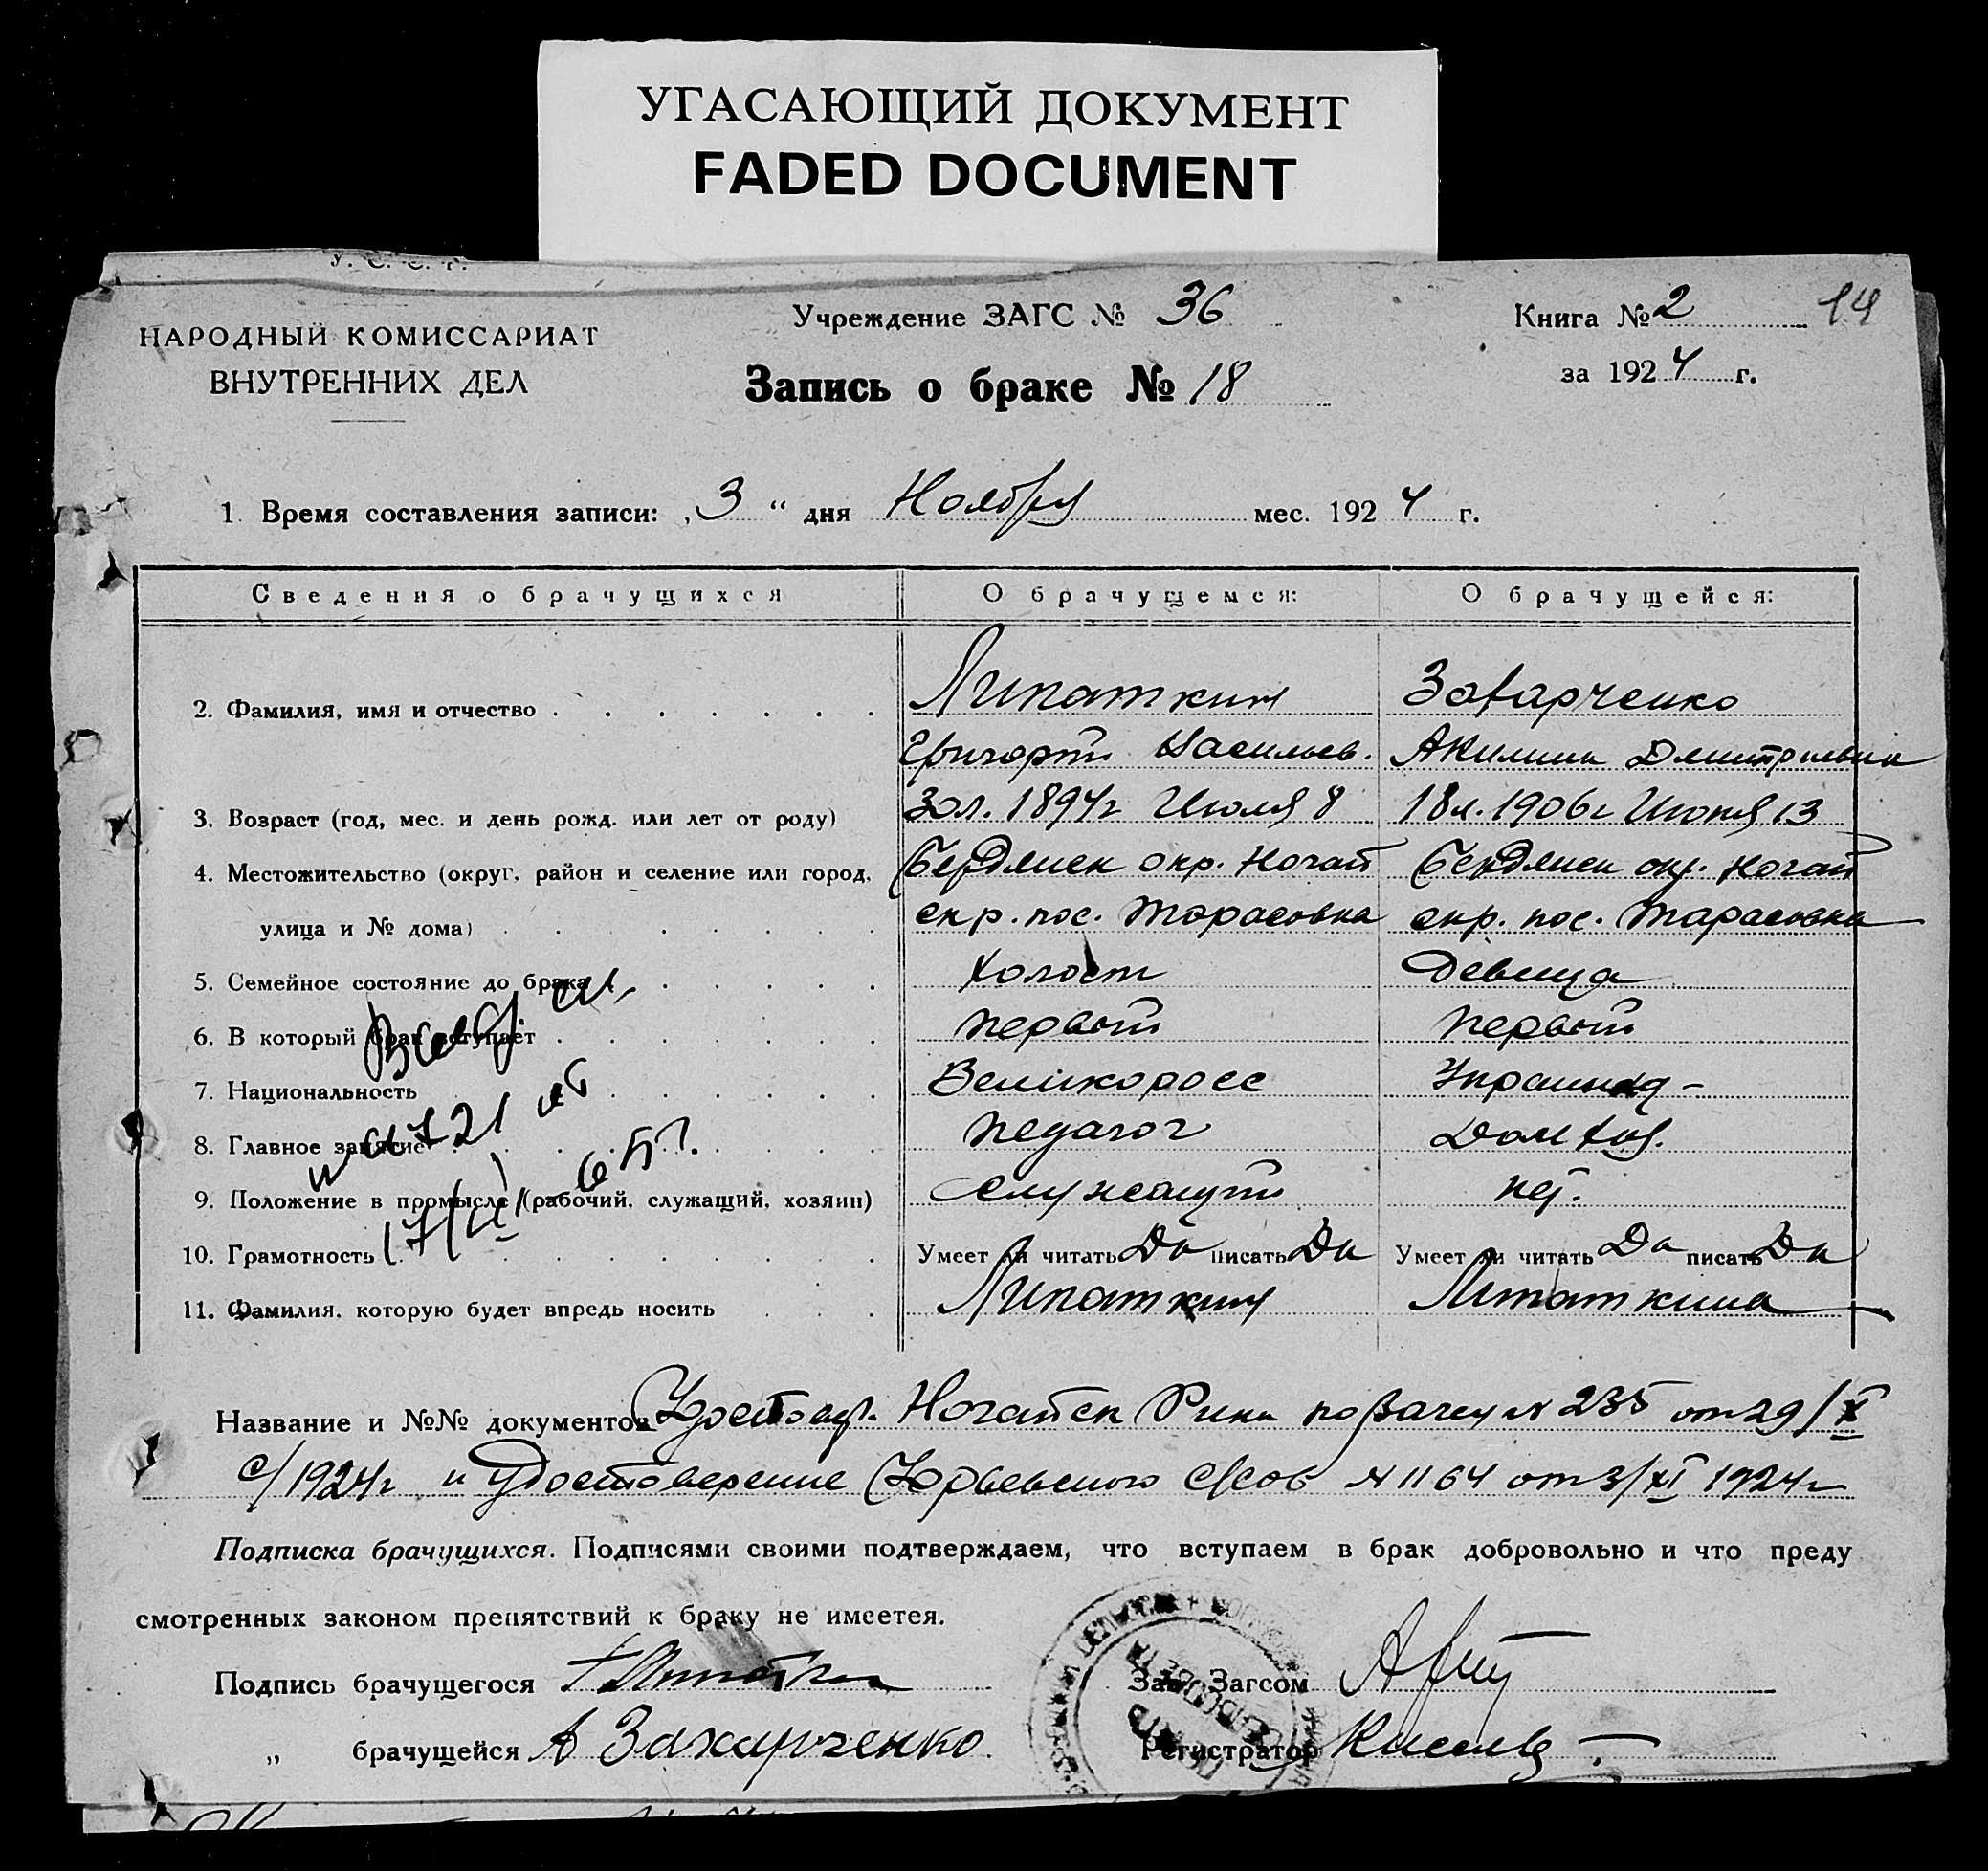 УГАСАЮЩИЙ ДОКУМЕНТ
FADED DOCUMENT
У. С. С. Р.
НАРОДНЫЙ КОМИССАРИАТ
ВНУТРЕННИХ ДЕЛ
Учреждение ЗАГС № 36
Запись о браке № 18
Книга № 2 14
за 1924 г.
1. Время составления записи: „3“ дня Ноября мес. 1924 г.
Сведения о брачущихся О брачущемся: О брачущейся:
2. Фамилия, имя и отчество Липаткин Захарченко
Григорий Васильев. Акилина Дмитриевна
3. Возраст (год, мес. и день рожд. или лет от роду) 30л. 1894г Июля 8 18л. 1906г Июня 13
4. Местожительство (округ, район и селение или город, Бердянск окр. Ногай Бердянск окр. Ногай
улица и № дома) скр. пос. Тарасовка скр. пос. Тарасовка
5. Семейное состояние до брака Холост Девица
6. В который брак вступает первый первый
7. Национальность Великоросс Украинка
8. Главное занятие педагог Дом хоз.
9. Положение в промысле (рабочий, служащий, хозяин) Служащий
10. Грамотность Умеет ли читать Да писать Да Умеет ли читать Да писать Да
11. Фамилия, которую будет впредь носить Липаткин Липаткина
Название и №№ документов Удостовер. Ногайск Рика по Загсу № 235 от 29/X
с/1924г и удостоверение Юрьевского с/сов № 1164 от 3/XI 1924г
Подписка брачущихся. Подписями своими подтверждаем, что вступаем в брак добровольно и что преду
смотренных законом препятствий к браку не имеется.
Подпись брачущегося Зав. Загсом
„ брачущейся А Захарченко Регистратор